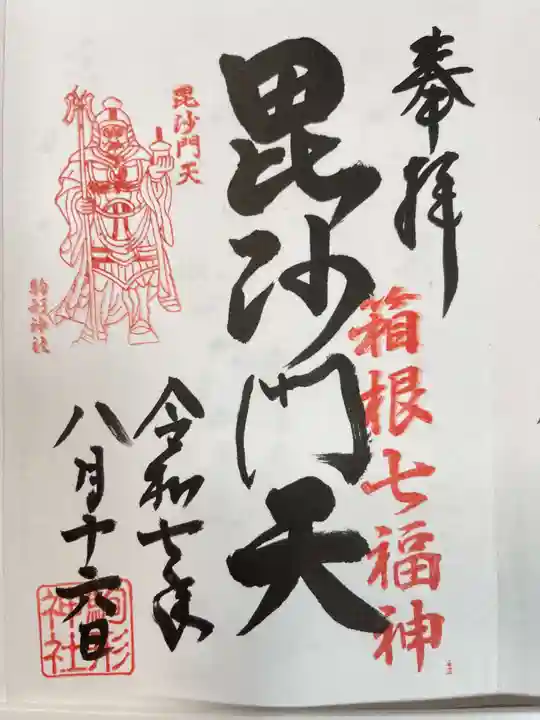 奉拝
箱根七福神
毘沙門天
毘沙門天
駒形神社
令和七年
八月十六日
駒形
神社